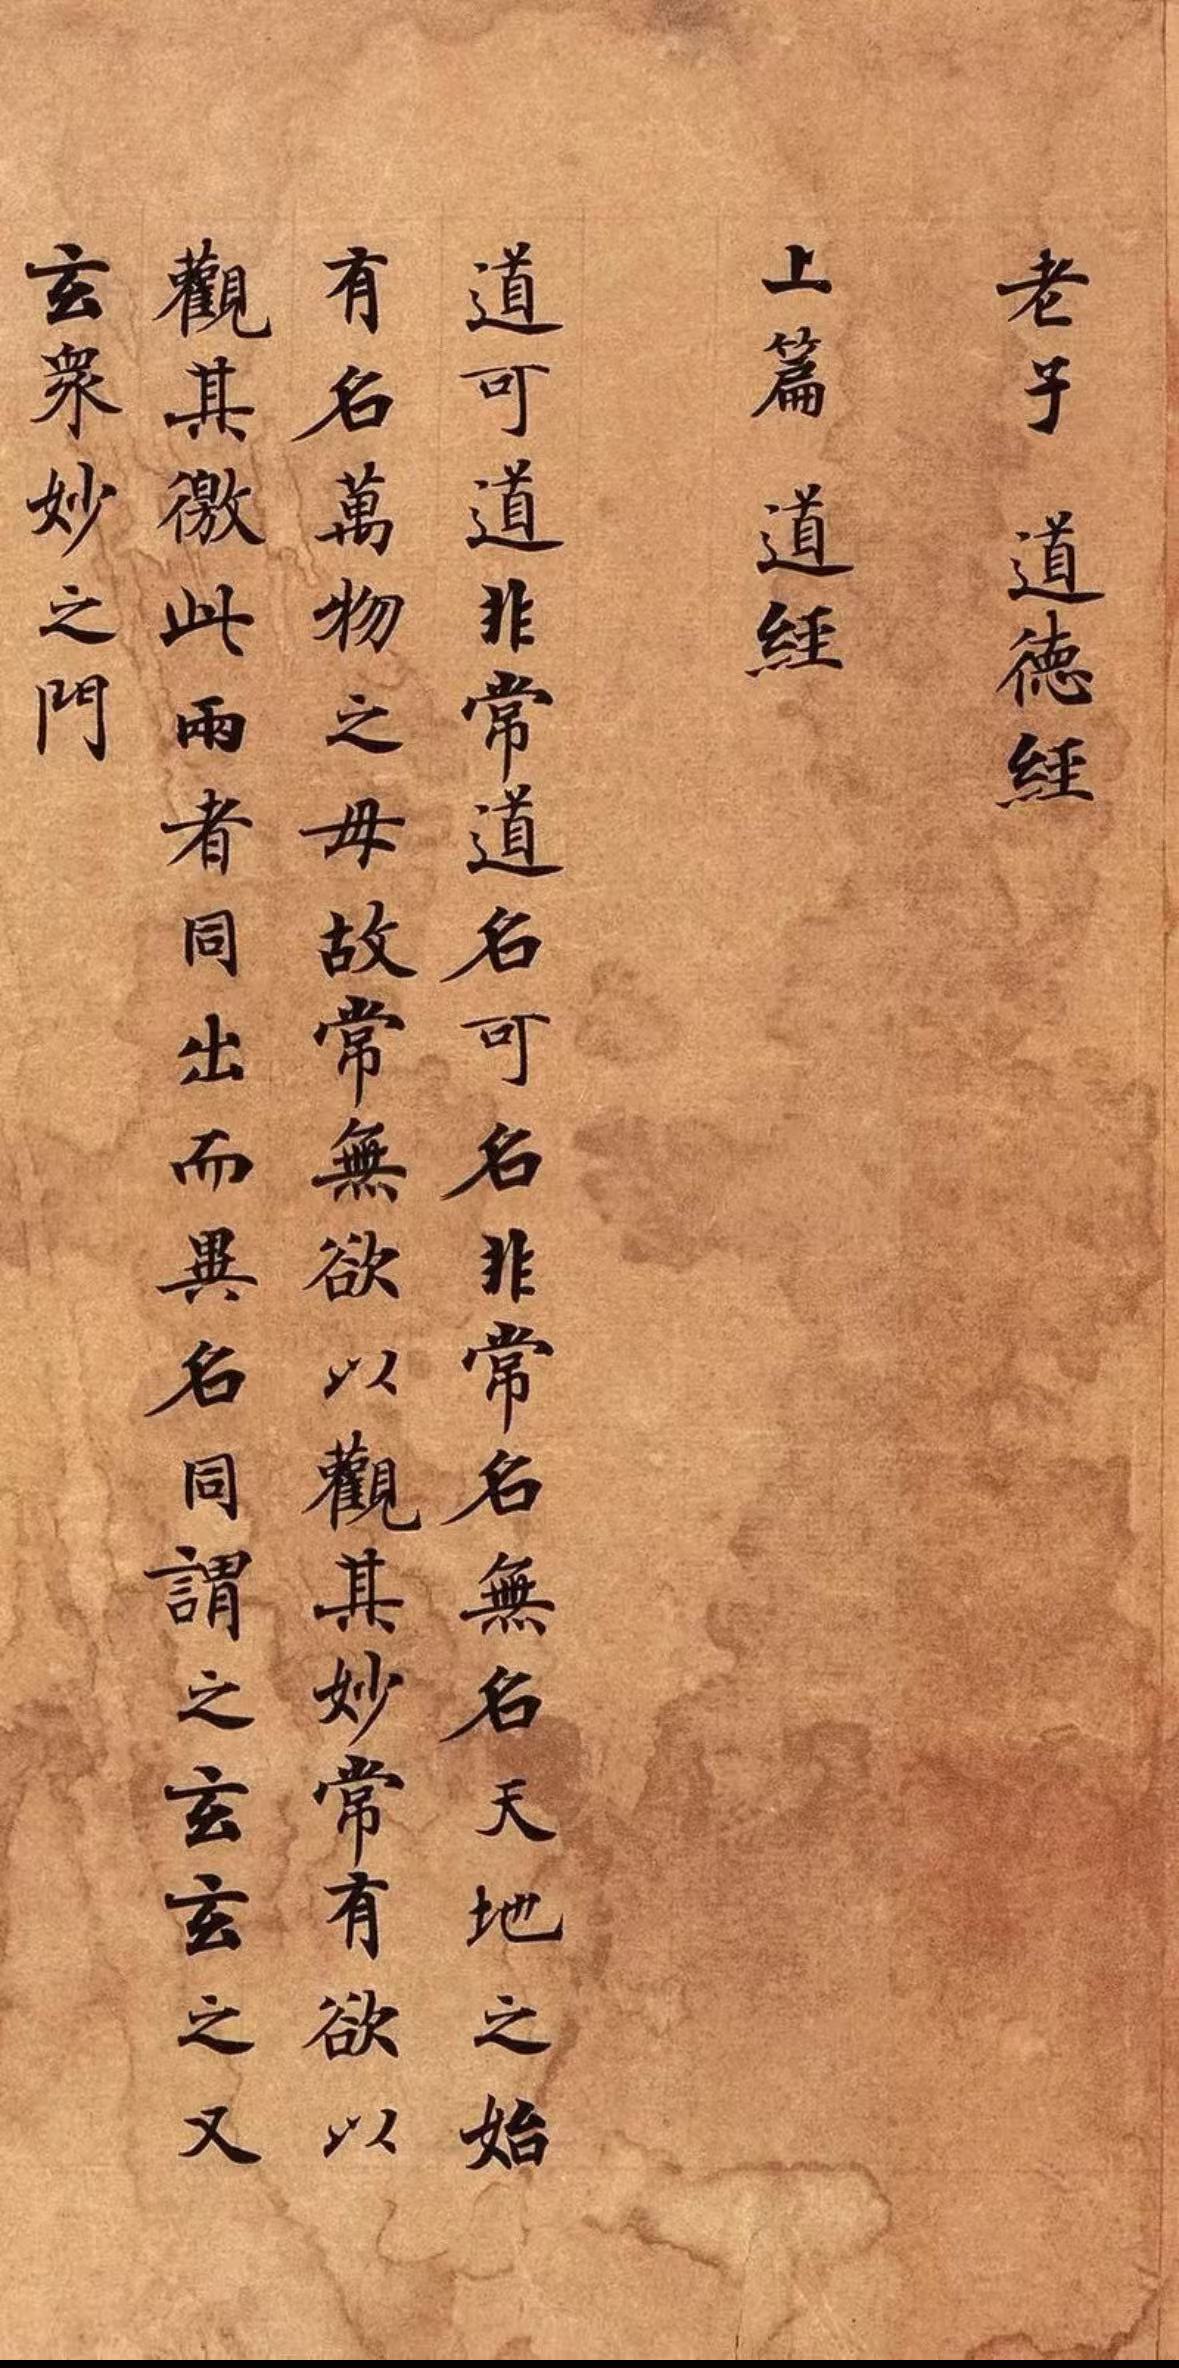 老子 道德經
上篇 道經
道可道非常道名可名非常名無名天地之始
有名萬物之母故常無欲以觀其妙常有欲以
觀其徼此兩者同出而異名同謂之玄玄之又
玄衆妙之門